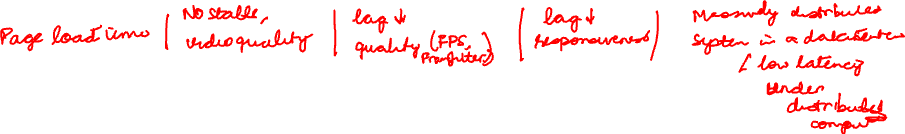 Page load time
No stable,
video quality
lag ↓
quality (FPS,
lag ↓
responsiveness
Massively distributed
system in a datacenter
/ low latency
under
distributed
compu